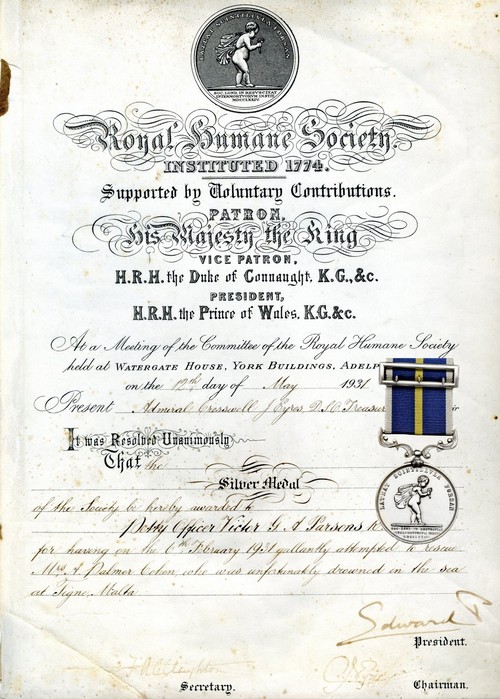 LATEAT SCINTILLVLA FORSAN
SOC. LOND. IN RESVSCITAT
INTERMORTVORVM INSTIT.
MDCCLXXIV.
Royal Humane Society.
INSTITUTED 1774.
Supported by Voluntary Contributions.
PATRON,
His Majesty the King
VICE PATRON,
H.R.H. the Duke of Connaught, K.G., &c.
PRESIDENT,
H.R.H. the Prince of Wales, K.G. &c.
At a Meeting of the Committee of the Royal Humane Society
held at WATERGATE HOUSE, YORK BUILDINGS, ADELP
on the 12th day of May 1931
Present Admiral Cresswell J Eyres D.S.O. Treasur
It was Resolved Unanimously
That the
Silver Medal
of the Society be hereby awarded to
Petty Officer Victor G. A Parsons R
for having on the 6th February 1931 gallantly attempted to rescue
Mrs A Palmer Cohen, who was unfortunately drowned in the sea
at Tigne, Malta
LATEAT SCINTILLVLA FORSAN
Edward P
President.
Secretary.
Chairman.